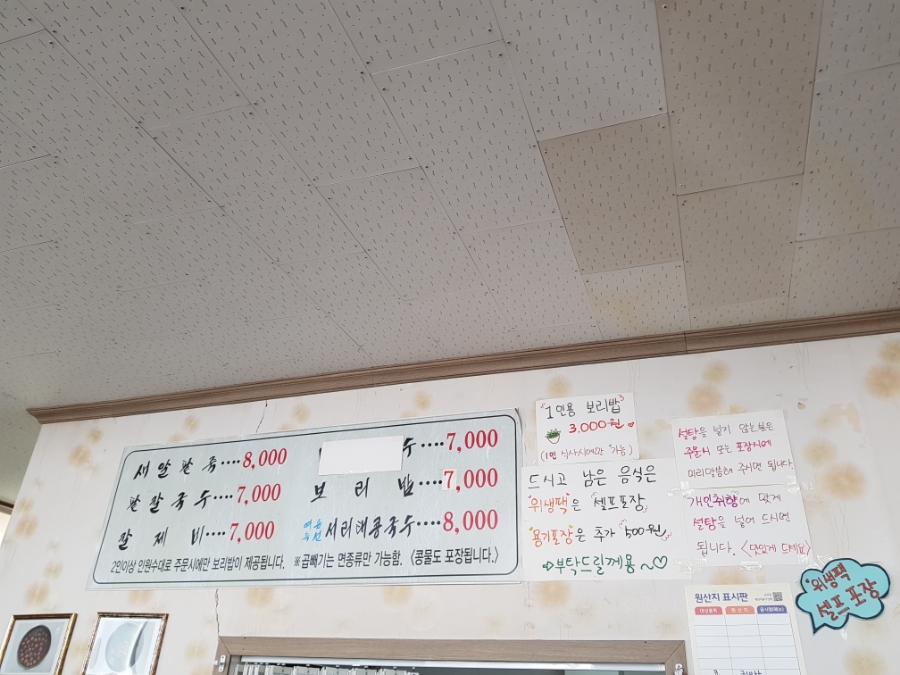 새알팥죽····8,000
팥칼국수····7,000
칼제비····7,000
수····7,000
보리밥····7,000
서리태콩국수····8,000
2인이상 인원수대로 주문시에만 보리밥이 제공됩니다. ※곱빼기는 면종류만 가능함. 〈콩물도 포장됩니다.〉
"1인용 보리밥"
3,000원
(1인 식사시에만 가능)
드시고 남은 음식은
"위생팩"은 셀프포장
"용기포장"은 추가 500원
부탁드릴께용~♡
설탕을 넣기 않는분은
주문시 또는 포장시에
미리말씀해 주시면 됩니다.
개인취향에 맞게
설탕을 넣어 드시면
됩니다. <맛있게 드세요>
원산지 표시판
"위생팩"
셀프포장